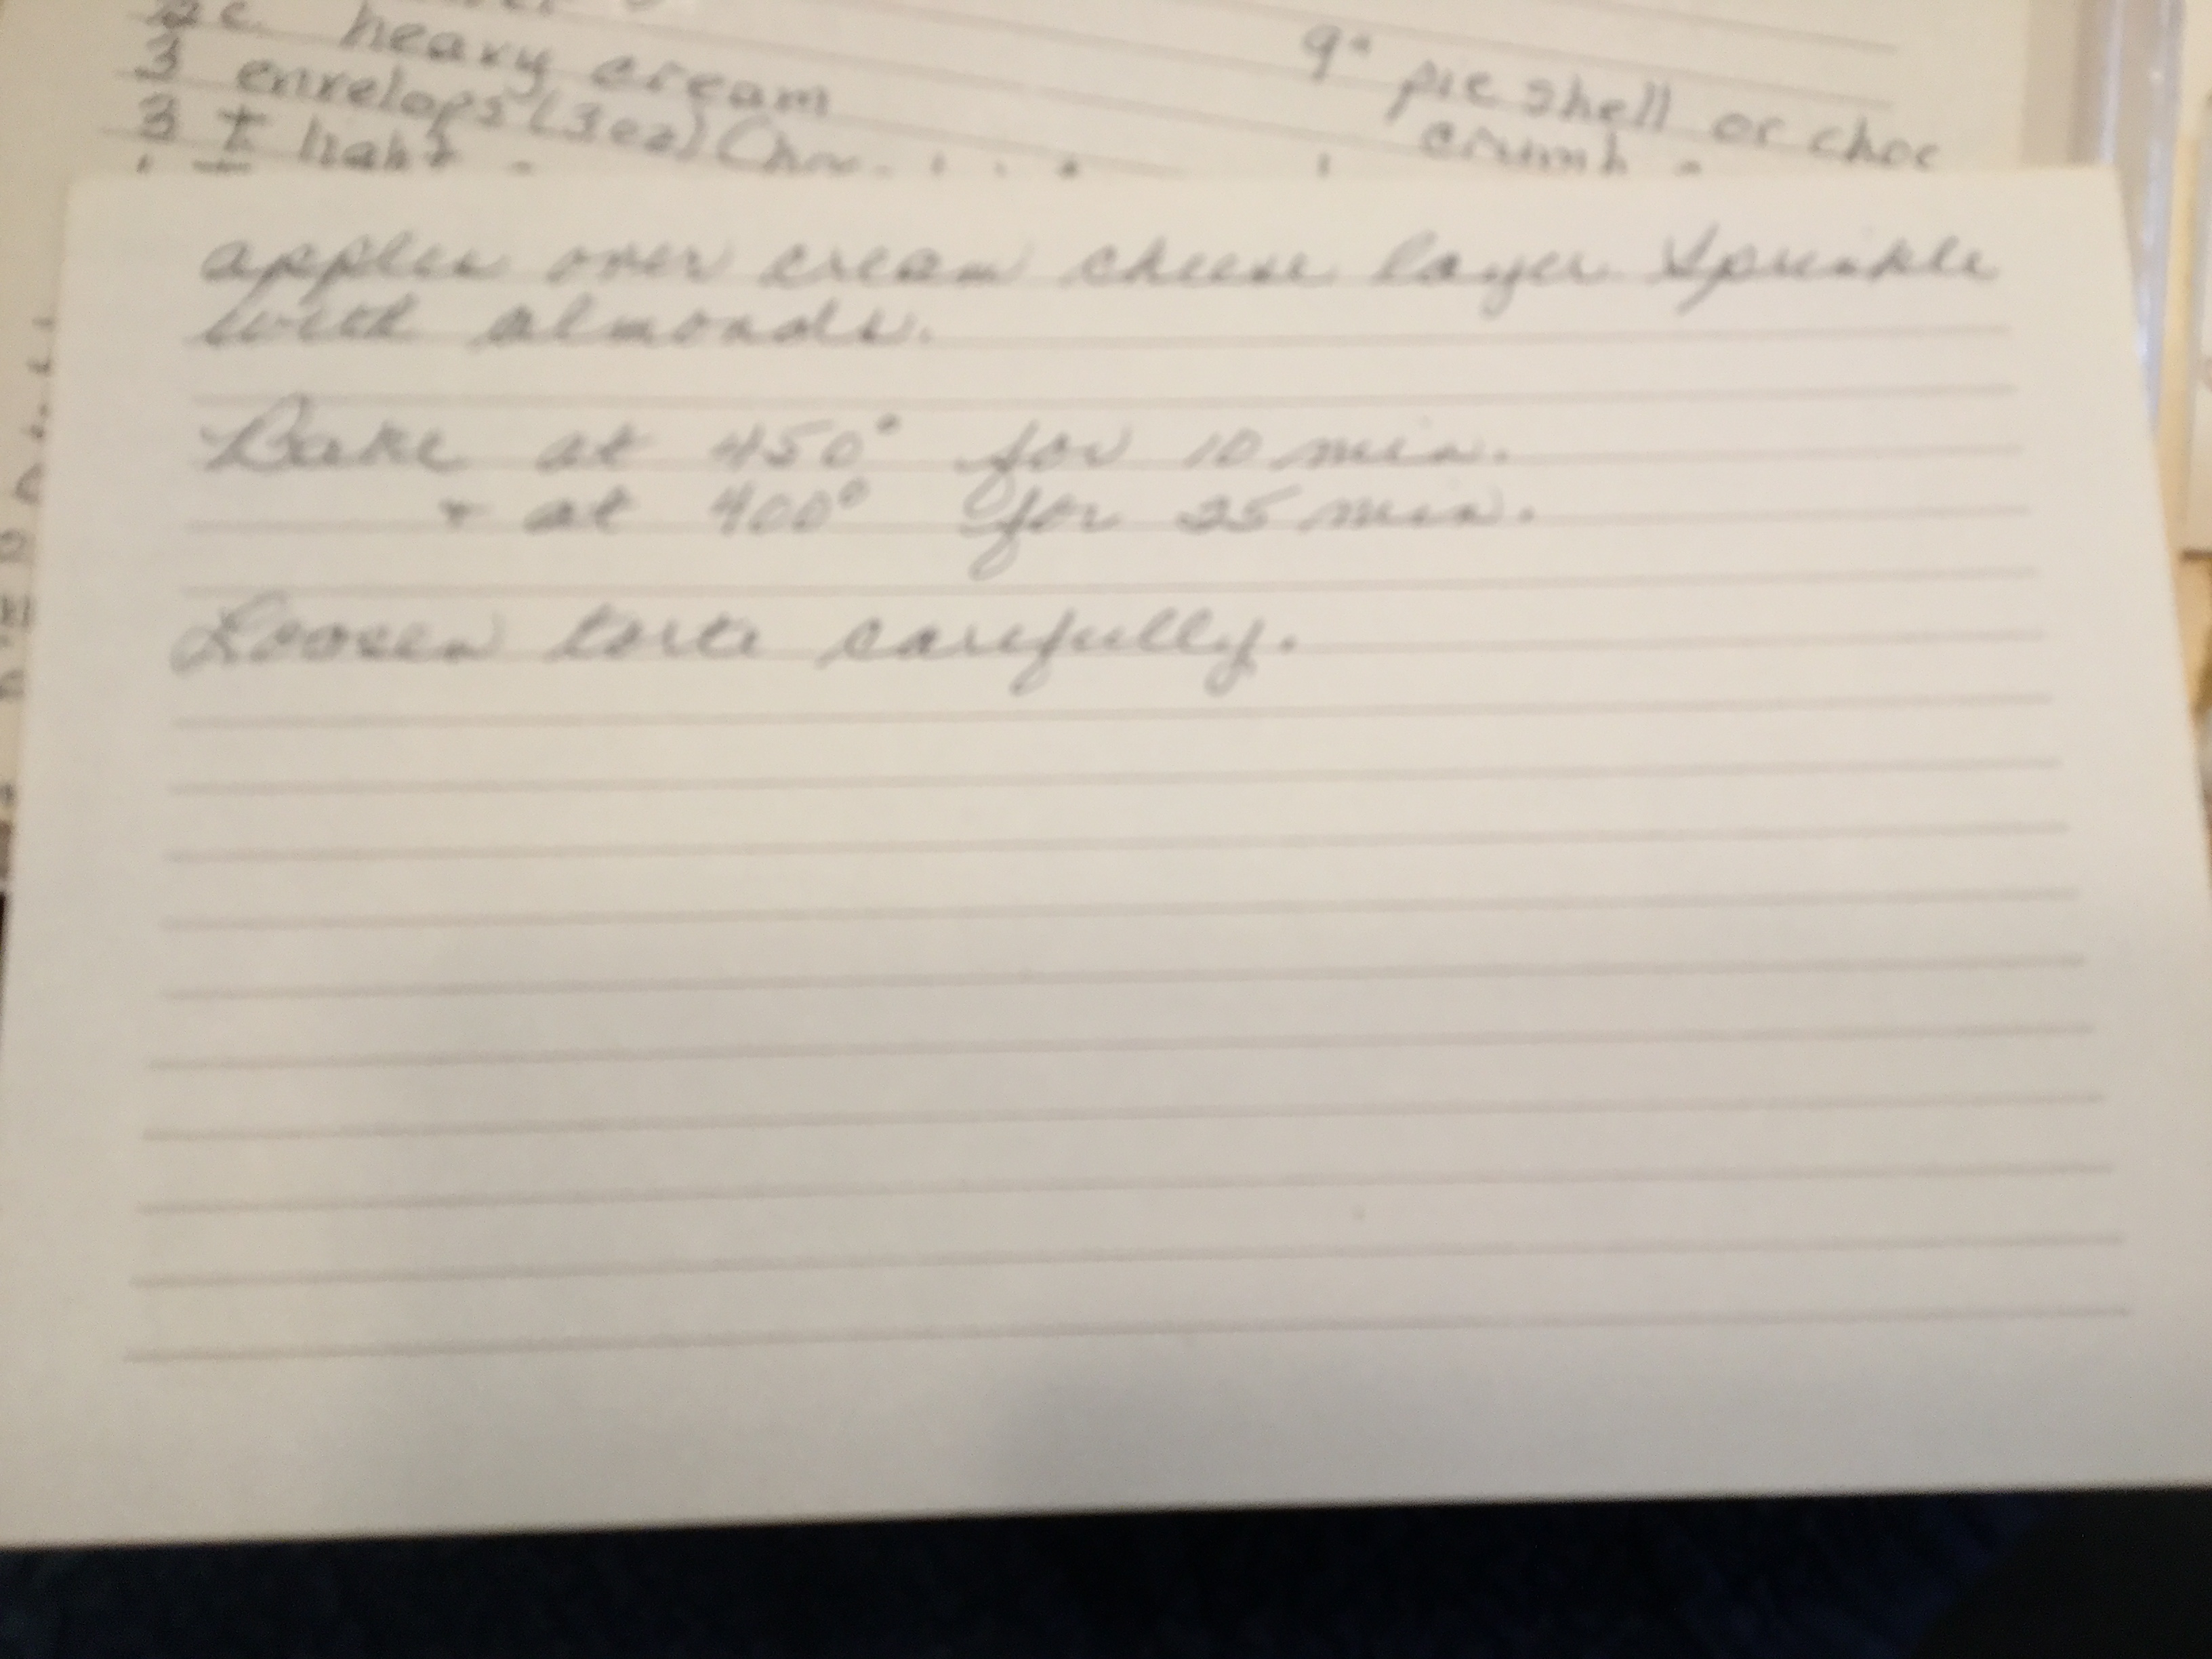 2c heavy cream
3 envelops (3 oz) Choc
3 T light
9" pie shell or choc
crumb
apples over cream cheese layer Sprinkle
with almonds.
Bake at 450° for 10 min.
+ at 400° for 25 min.
Loosen torte carefully.